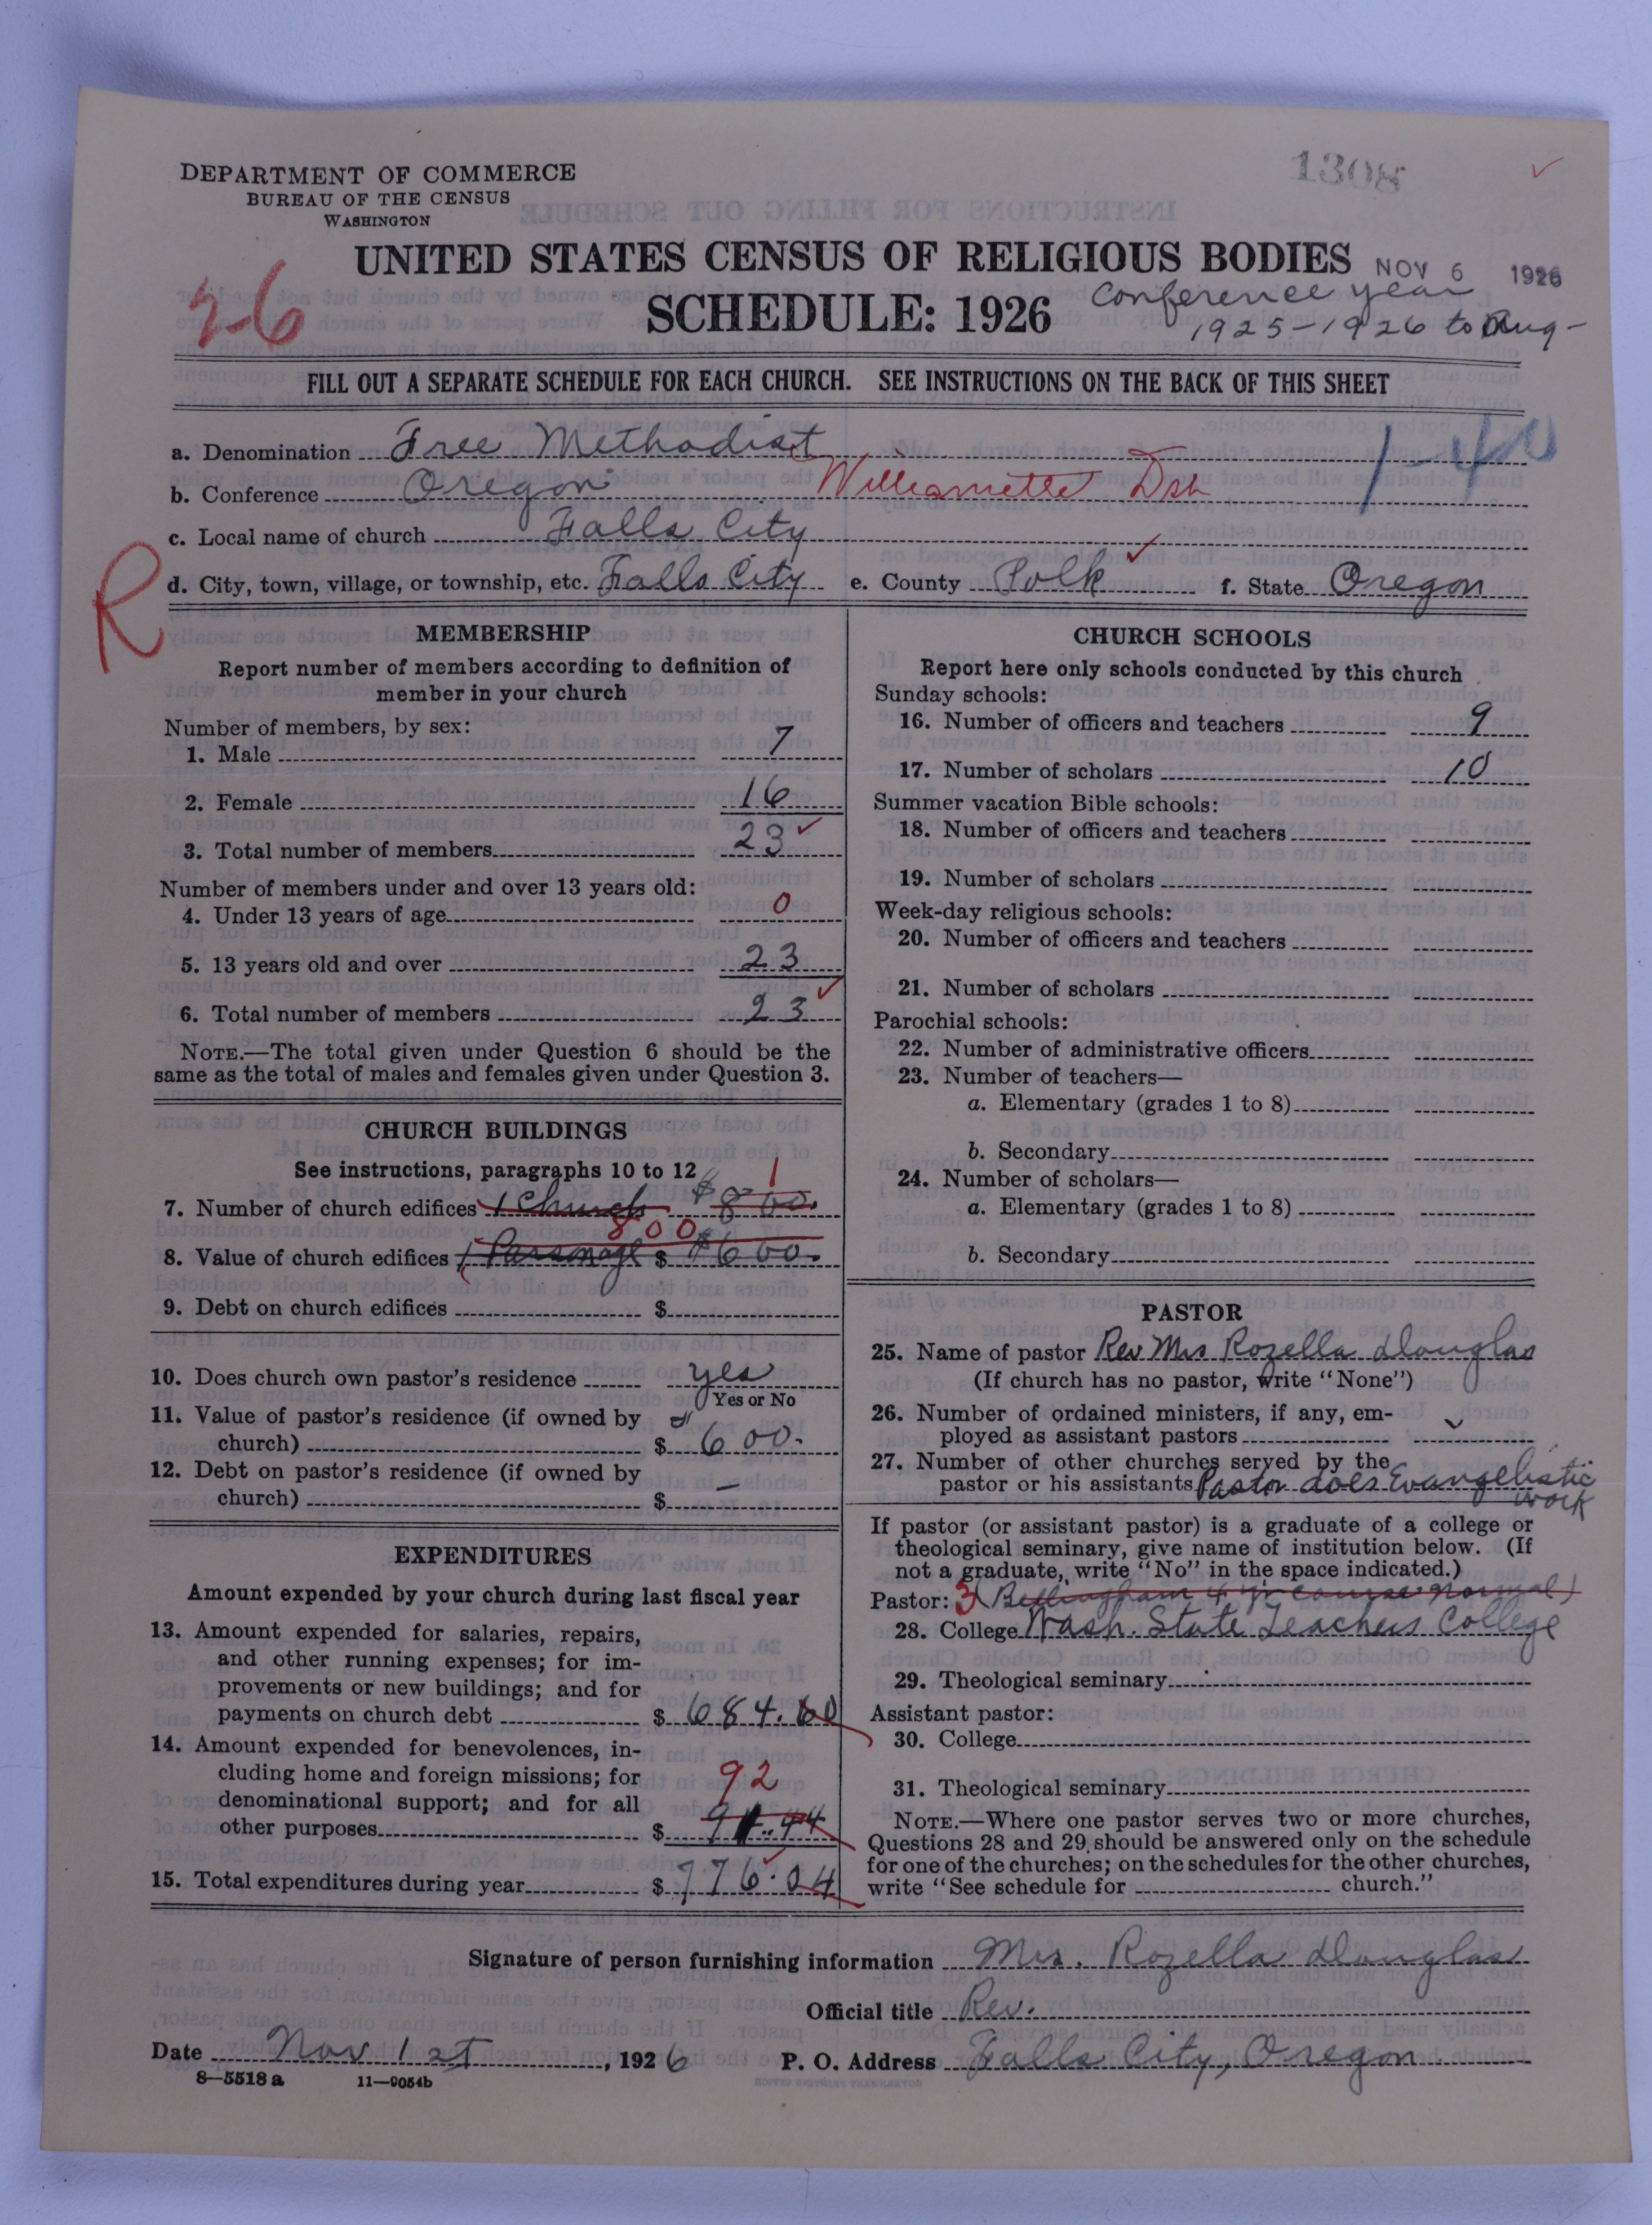 1308
DEPARTMENT OF COMMERCE
BUREAU OF THE CENSUS
WASHINGTON
UNITED STATES CENSUS OF RELIGIOUS BODIES
NOV 6 1926
SCHEDULE: 1926
Conference year
1925-1926 to Aug-
26
FILL OUT A SEPARATE SCHEDULE FOR EACH CHURCH. SEE INSTRUCTIONS ON THE BACK OF THIS SHEET
a. Denomination Free Methodist
1-40
b. Conference Oregon Williamette Dst
c. Local name of church Falls City
R
d. City, town, village, or township, etc. Falls City e. County Polk f. State Oregon
MEMBERSHIP
Report number of members according to definition of
member in your church
Number of members, by sex:
1. Male 7
2. Female 16
3. Total number of members 23
Number of members under and over 13 years old:
4. Under 13 years of age 0
5. 13 years old and over 23
6. Total number of members 23
NOTE.—The total given under Question 6 should be the
same as the total of males and females given under Question 3.
CHURCH BUILDINGS
See instructions, paragraphs 10 to 12
1
7. Number of church edifices 1 Church $800.
800
8. Value of church edifices 1 Parsonage $ $600.
9. Debt on church edifices $
10. Does church own pastor's residence yes
Yes or No
11. Value of pastor's residence (if owned by
church) $ 600.
12. Debt on pastor's residence (if owned by
church) $ —
EXPENDITURES
Amount expended by your church during last fiscal year
13. Amount expended for salaries, repairs,
and other running expenses; for im-
provements or new buildings; and for
payments on church debt $ 684.60
14. Amount expended for benevolences, in-
cluding home and foreign missions; for
denominational support; and for all
92
other purposes $ 91.44
15. Total expenditures during year $ 776.04
CHURCH SCHOOLS
Report here only schools conducted by this church
Sunday schools:
16. Number of officers and teachers 9
17. Number of scholars 10
Summer vacation Bible schools:
18. Number of officers and teachers
19. Number of scholars
Week-day religious schools:
20. Number of officers and teachers
21. Number of scholars
Parochial schools:
22. Number of administrative officers
23. Number of teachers—
a. Elementary (grades 1 to 8)
b. Secondary
24. Number of scholars—
a. Elementary (grades 1 to 8)
b. Secondary
PASTOR
25. Name of pastor Rev Mrs Rozella Douglas
(If church has no pastor, write "None")
26. Number of ordained ministers, if any, em-
ployed as assistant pastors
27. Number of other churches served by the
pastor or his assistants Pastor does Evangelistic
work
If pastor (or assistant pastor) is a graduate of a college or
theological seminary, give name of institution below. (If
not a graduate, write "No" in the space indicated.)
Pastor: 3 (Bellingham 4 yr course normal)
28. College Wash. State Teachers College
29. Theological seminary
Assistant pastor:
30. College
31. Theological seminary
NOTE.—Where one pastor serves two or more churches,
Questions 28 and 29 should be answered only on the schedule
for one of the churches; on the schedules for the other churches,
write "See schedule for church."
Signature of person furnishing information Mrs. Rozella Douglas
Official title Rev.
Date Nov 1st, 1926 P. O. Address Falls City, Oregon
8—5518 a 11—9054b